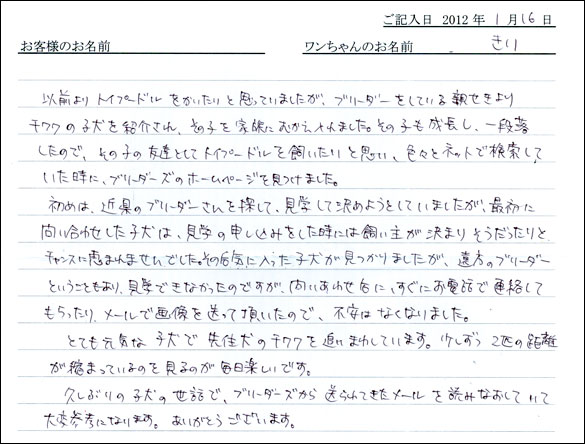 ご記入日 2012年 1月16日
お客様のお名前 ワンちゃんのお名前 きり
以前よりトイプードルをかいたいと思っていましたが、ブリーダーをしている親せきより
チワワの子犬を紹介され、その子を家族にむかえ入れました。その子も成長し、一段落
したので、その子の友達としてトイプードルを飼いたいと思い、色々とネットで検索して
いた時に、ブリーダーズのホームページを見つけました。
初めは、近県のブリーダーさんを探して、見学して決めようとしていましたが、最初に
問い合わせした子犬は、見学の申し込みをした時には飼い主が決まりそうだったりと
チャンスに恵まれませんでした。その后気に入った子犬が見つかりましたが、遠方のブリーダー
ということもあり、見学できなかったのですが、問いあわせ后に、すぐにお電話で連絡して
もらったり、メールで画像を送って頂いたので、不安はなくなりました。
とても元気な子犬で先住犬のチワワを追いまわしています。少しずつ2匹の距離
が縮まっているのを見るのが毎日楽しいです。
久しぶりの子犬の世話で、ブリーダーズから送られてきたメールを読みなおしていて
大変参考になります。ありがとうございます。